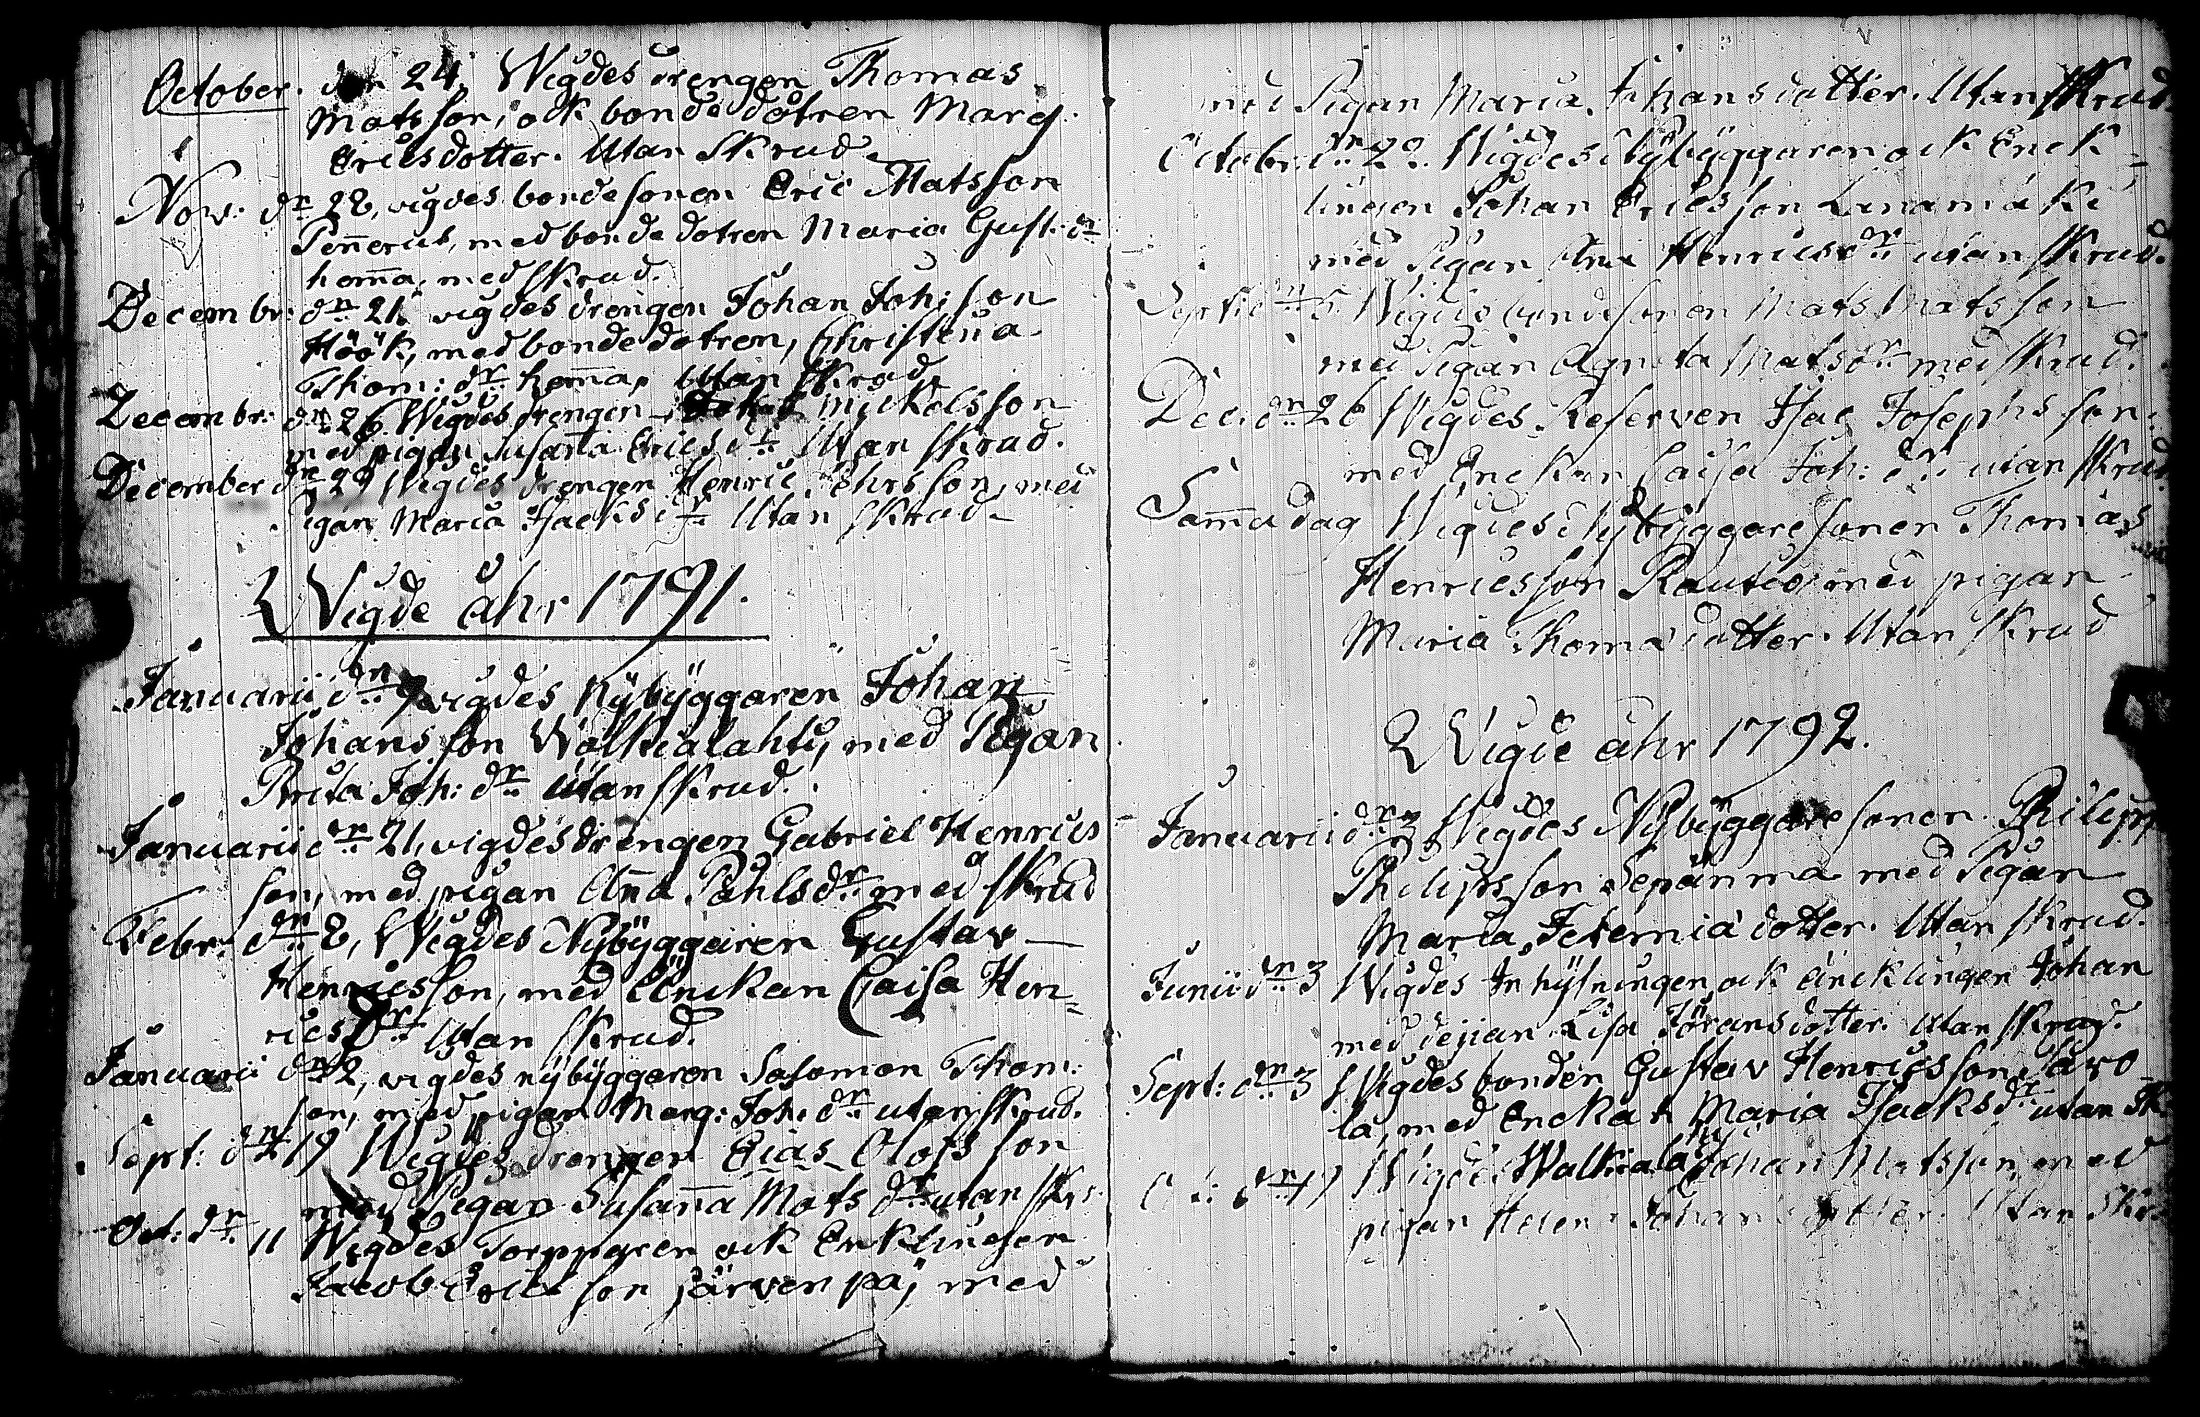 October. den 24, Wigdes drengen Thomas
Matsson, ock bonde dotren Marg.
Ericsdotter. Utan Skrud.
Nov: dn 28, vigdes bondesonen Eric Matsson
med bonde dotren Maria Gust: dr
hema, med skrud.
Decembr: dn 21, vigdes drengen Johan Joh: son
Höök, med bonde dotren, Christena
Thom: dr hema, Utan Skrud.
Decembr: dn 26 Wigdes drengen Mickelsson
med pigan Susana Erics dr Utan Skrud.
December dn 29 Wigdes drengen Henric Pehrsson, med
Pigan Maria Isacks dr Utan Skrud.
Wigde åhr 1791.
Januarii dn 9 vigdes Nybyggaren Johan
Johansson Walkialahty, med Pigan
Brita Joh: dr Utan Skrud.
Januarii dn 21, vigdes drengen Gabriel Henrics
son, med pigan Ana Påhls dr med Skrud
Febr: dn 8, Wigdes Nybyggaren Gustav
Henricsson, med Enckan Caisa Hen=
rics Dr Utan Skrud.
Januarii dn 2, vigdes nybyggaren Salomon Thom:
son, med pigan Marg: Joh: dr utan Skrud.
Sept: dn 19 Wigdes drengen Elias Olofs son
med Pigan Susana Mats dr utan Skr:
Oct: dr 11 Wigdes Torpparen ock Enklingen
Jacob Ericsson järvenpä, med
med Pigan Maria Johansdotter. Utan Skrud
Octobr: dn Wigdes Nybyggaren ock Enck=
lingen Johan Ericsson Lanamäki
med Pigan Ana Henrics dr utan Skrud.
Sept: dn 5 Wigdes bondesonen Mats Matsson
med Pigan Agneta Mats dr med Skrud.
Dec: dn 26 Wigdes Reserven Isac Josephsson
med Enckan Caisa Joh: dr utan Skrud.
Sama dag Wigdes Nybyggaresonen Thomas
Henricsson Rautio, med pigan
Maria Thomadotter. Utan Skrud
Wigde åhr 1792.
Januarii dn 3 Wigdes Nybyggaresonen Philip
Philipsson Sepänmä med Pigan
Maria Jeremiädotter. Utan Skrud.
Junii dn 3 Wigdes Inhysningen ock Encklingen Johan
med dejian Lisa Göransdotter. Utan Skrud.
Sept: dn 3 Wigdes bonden Gustav Henricsson Savo
la, med Enckan Maria Isacks dr utan Sk
Oct: dn 17 Wigdes Walkialahty Johan Matsson, med
pigan Helena Johansdotter. Utan Skr.